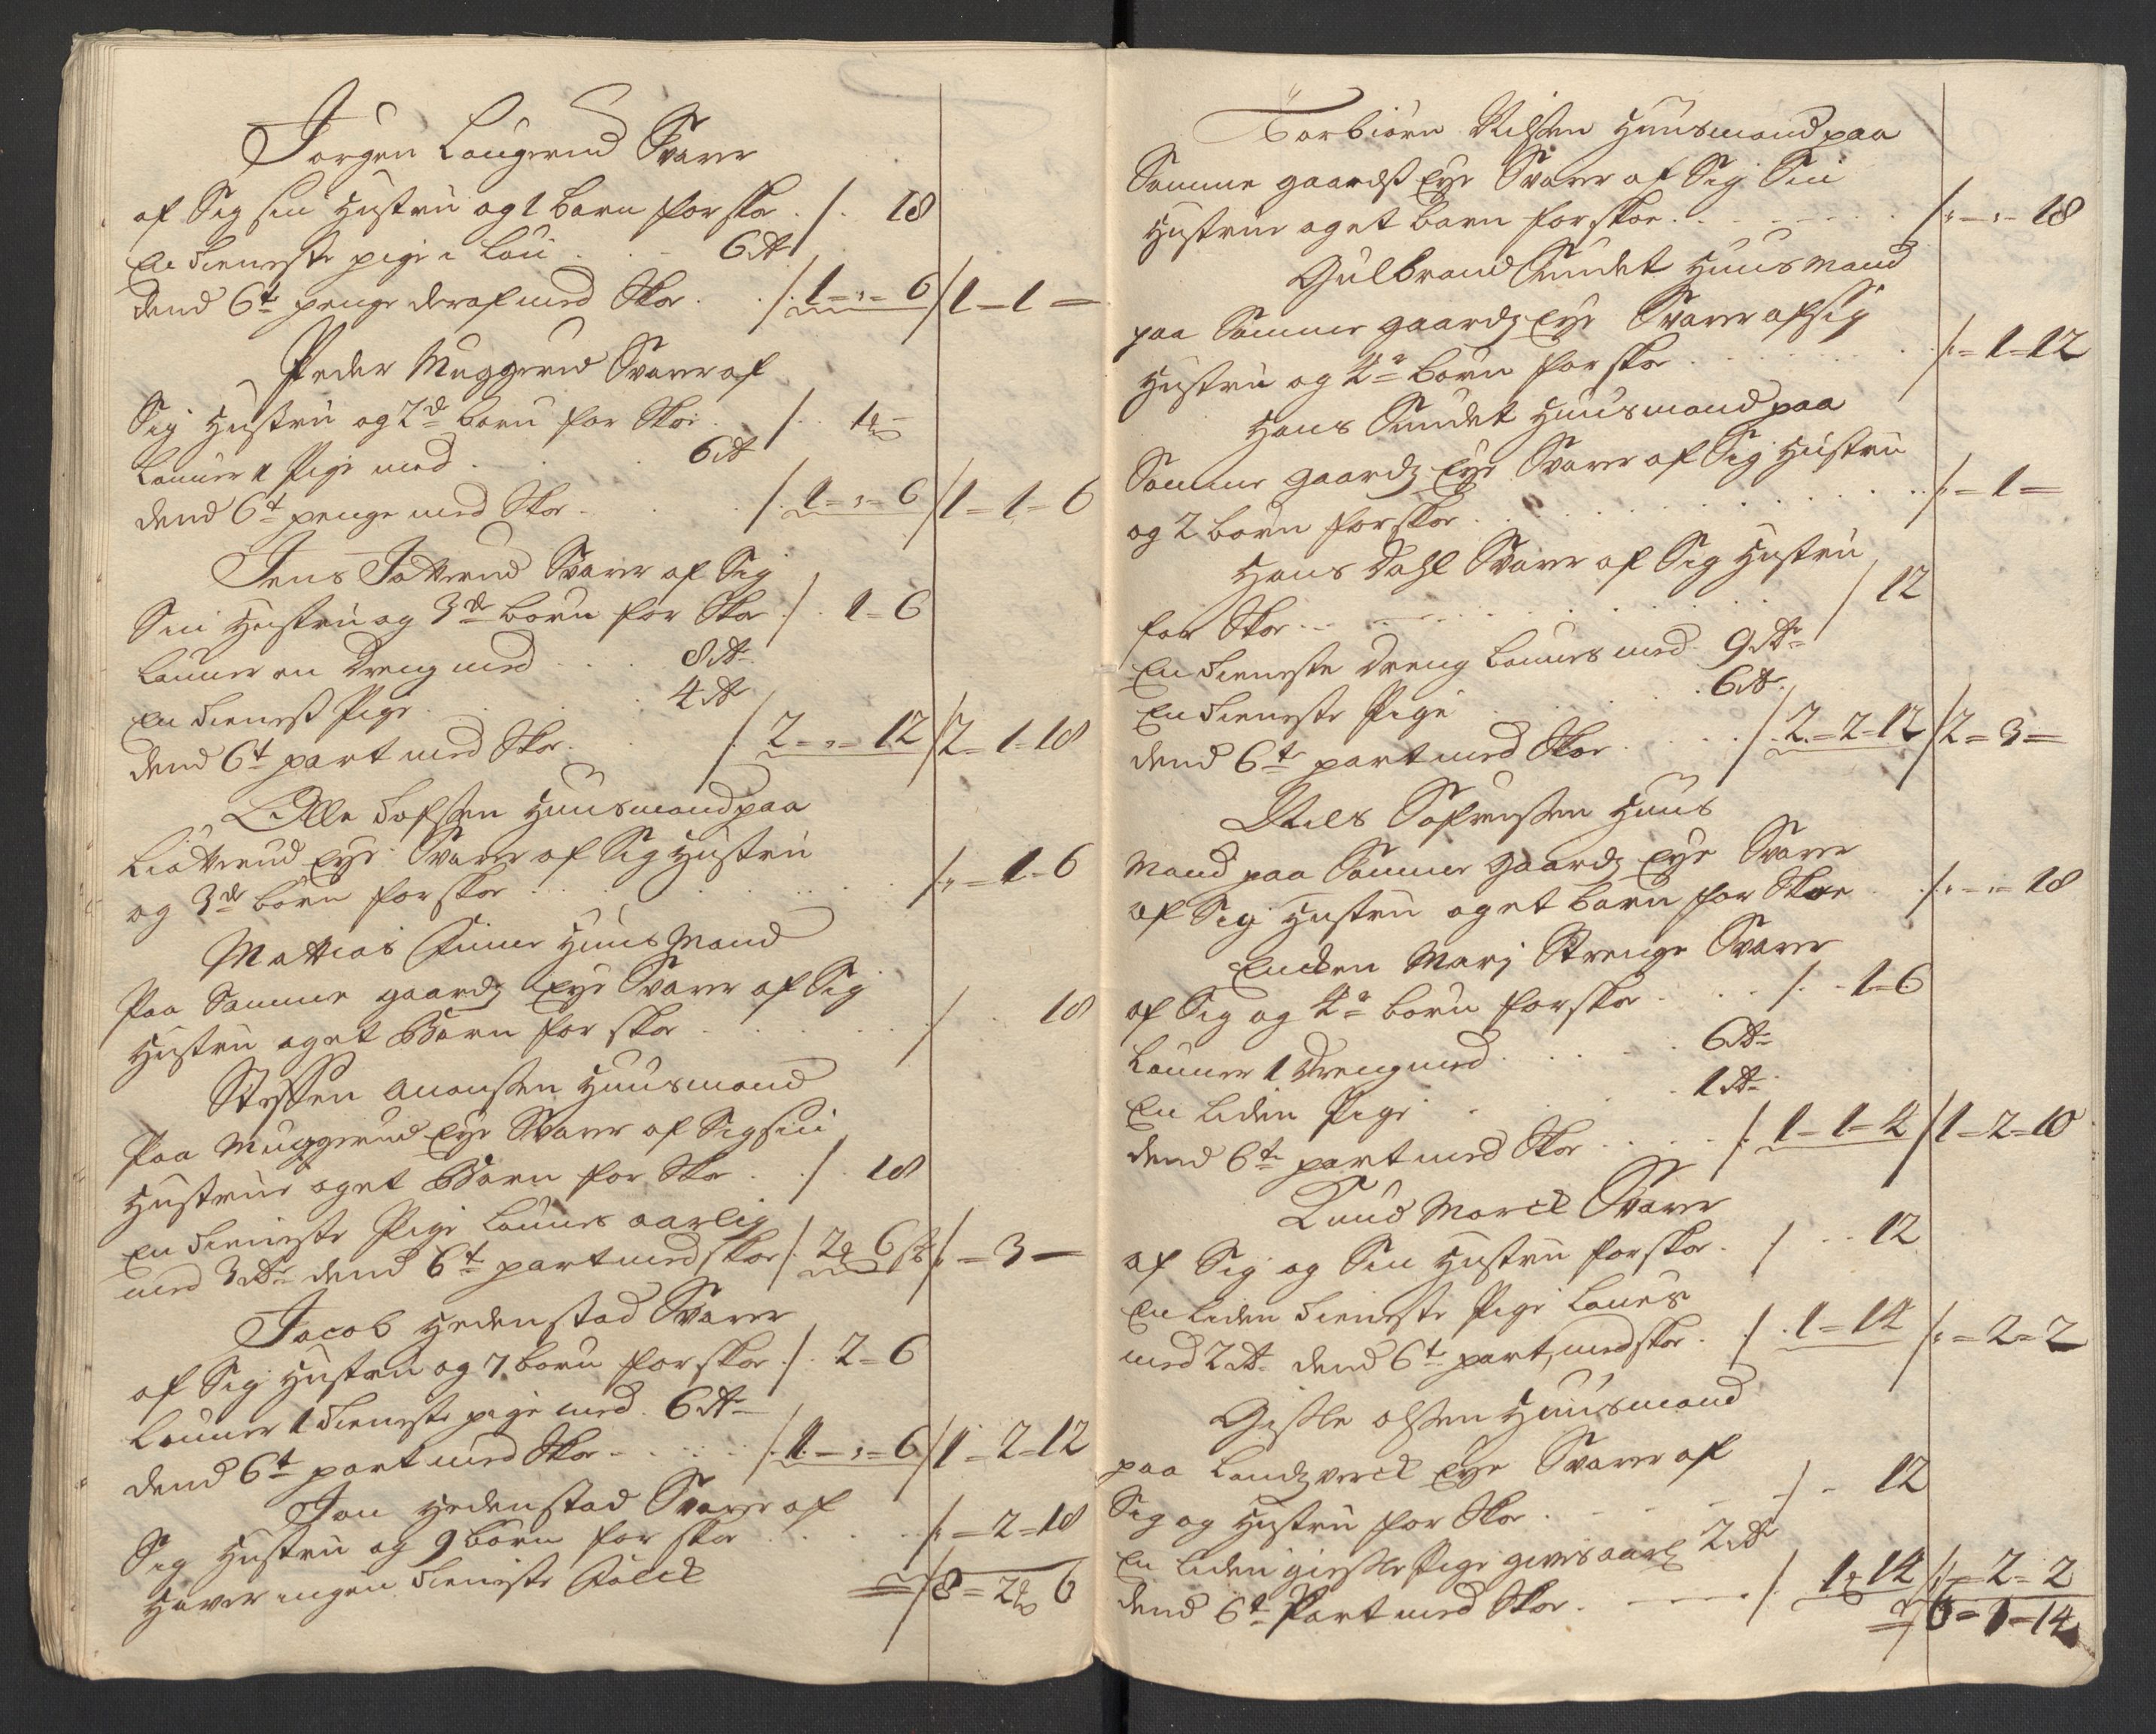 Jørgen Laugerud Svarer
af Sig sin Hustru og 1 barn for skoe ./. 18
En Tieneste pige i løn . . 6 rdr
dend 6te penge deraf med Skoe . ./. 1 = " = 6 / 1 = 1 =
Peder Muggerud Svarer af
Sig Hustru og 2de børn for Skoe . /. . 1 -
Lønner 1 Pige med . . . 6 rdr
dend 6te penge med Skoe . . . /. 1 = " = 6 / 1 = 1 = 6
Jens Svarer af Sig
Sin Hustru og 3de børn for Skoe ./. 1 = 6
Lønner en Dreng med . . . 8 rdr
En Tienest Pige . . . 4 rdr
dend 6te part med Skoe . . /. 2 = " = 12 / 2 = 1 = 18
Olle Huusmand paa
Eye Svarer af Sig Hustru
og 3de børn for skoe . . . /. " = 1 = 6
Mattias Huus Mand
Paa Samme gaards Eye Svarer af Sig
Hustru og et Barn for skoe . . . / . 18
Steffen Huusmand
Paa Muggerud Eye Svarer af Sig sin
Hustrue og et Barn for Skoe . ./. 18
En Tieneste Pige Lønnes aarlig
med 3 rdr dend 6te part med skoe /. 2 6 /. = 3 =
Jacob Hedenstad Svarer
af Sig Hustru og 7 børn for skoe ./. 2 = 6
Lønner 1 Tieneste pige med . 6 rdr
dend 6te part med Skoe . . . /. 1 = " = 6 / 1 = 2 = 12
Jon Hedenstad Svarer af
Sig Hustru og 9 børn for skoe . . . /. = 2 = 18
Haver ingen Tieneste Folck / 8 = 2 6
Torbiørn Nilssen Huusmand paa
Samme gaards Eye Svarer af Sig Sin
Hustrue og et barn for skoe . . . /. " = " = 18
Gulbrand Sundet Huus Mand
paa Samme gaards Eye Svarer af sig
Hustru og 4re børn for skoe . . . /. = 1 = 12
Hans Sundet Huusmand paa
Samme gaards Eye Svarer af Sig Hustru
og 2 børn for skoe . . . /. = 1 =
Hans Dahl Svarer af Sig Hustru
for Skoe . . . / 12
En Tieneste Dreng Lønnes med . 9 rdr
En Tieneste Pige . . . 6 rdr
dend 6te part med Skoe . . . /. 2 = 2 = 12 / 2 = 3 =
Niels Huus
Mand paa Samme gaards Eye Svarer
af Sig Hustru og et barn for Skoe . /. " = " = 18
Encken Mari Strenge Svarer
af Sig og 4re børn for skoe . . . /. . 1 = 6
Lønner 1 Dreng med . . . 6 rdr
En Liden Pige . . . 1 rdr
dend 6te part med Skoe . . . /. 1 = 1 = 4 / 1 = 2 = 10
Knud Morck Svarer
af Sig og Sin Hustru for skoe . / . . 12
En Liden Tieneste Pige Lønes
med 2 rdr dend 6te part, med skoe . /. 1 = 14 /. = 2 = 2
Gisle olssen Huusmand
paa Eye Svarer af
Sig og Hustru for Skoe . . . / - 12
En Liden Pige gives aarl: 2 rdr
dend 6te Part med Skoe . . . /. 1 14 /. = 2 = 2
6 = 1 = 14